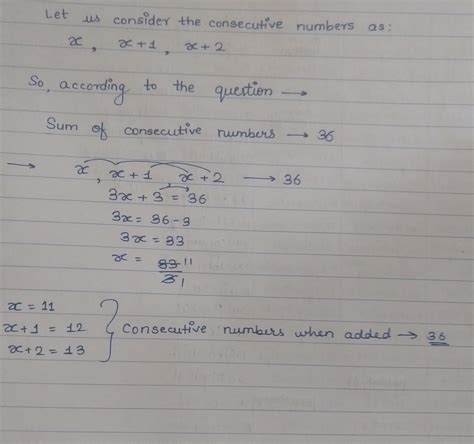 Let us consider the consecutive numbers as:
x, x+1, x+2
So, according to the question →
Sum of consecutive numbers → 36
→ x, x+1 x+2 → 36
3x+3 = 36
3x = 36-3
3x = 33
x = 33 11
3 1
x = 11
x+1 = 12
x+2 = 13
} Consecutive numbers when added → 36